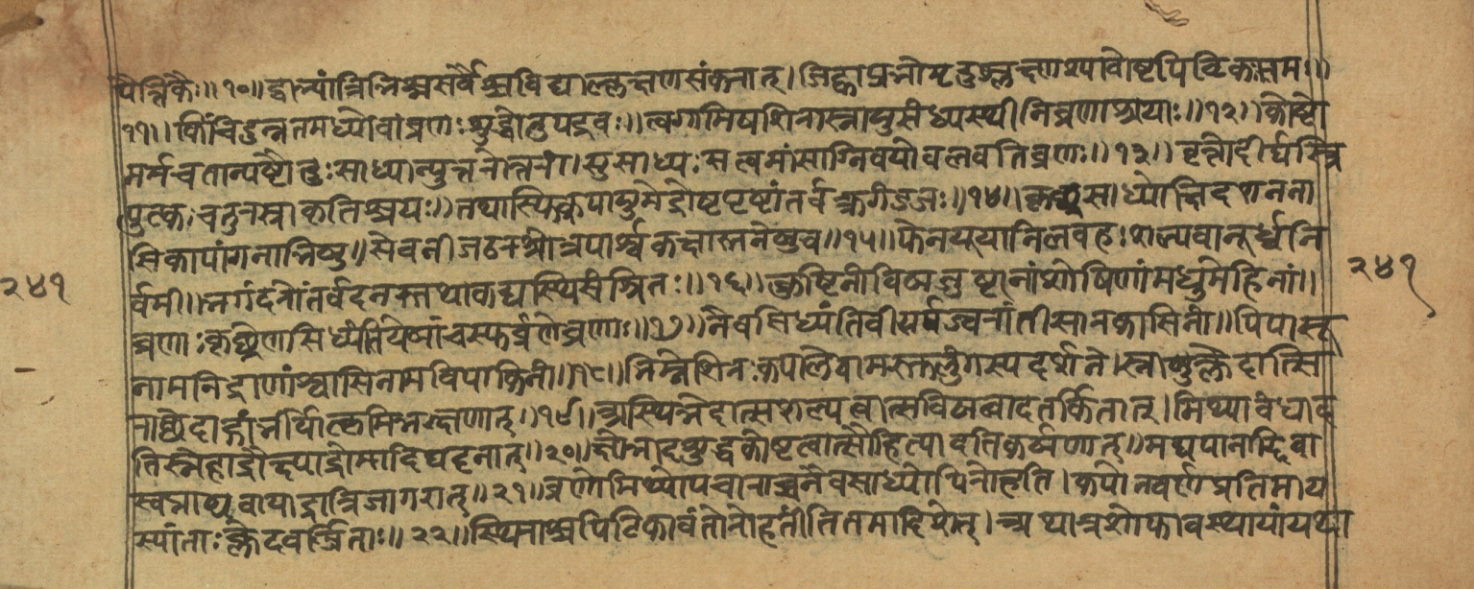 पैत्तिकैः॥१०॥ द्वाभ्यां त्रिभिश्च सर्वैश्च विद्याल्लक्षणसंकरात्। जिह्वाप्रभो मृदुः श्लक्ष्णश्यावोष्टपिटिकः समः॥
११॥ किंचिदुन्नतमध्यो वा व्रणः शुद्धोनुपद्रवः॥ त्वगामिषशिरास्नायुसंध्यस्थीनि व्रणाश्रयाः॥१२॥ कोष्टो
मर्म च तान्यष्टौ दुःसाध्यान्युत्तरोत्तरं। सुसाध्यः सत्वमांसाग्निवयोबलवति व्रणः॥१३॥ वृत्तो दीर्घस्त्रि
पुटकः चतुरस्राकृतिश्च यः॥ तथा स्फिक्पायुमेढ्रोष्टपृष्टांतर्वक्त्रगंडजः॥१४॥ कृच्छ्रसाध्योक्षिदशनना
सिकापांगनाभिषु॥ सेवनीजठरश्रोत्रपार्श्वकक्षास्तनेषु च॥१५॥ फेनपूयानिलवहः शल्यवानूर्ध्वनि
र्वमी॥ भगंदरोंतर्वदनस्तथा कट्यस्थिसंश्रितः॥१६॥ कुष्टिनां विषजुष्टानां शोषिणां मधुमेहिनां॥
व्रणाः कृच्छ्रेण सिध्यंति येषां च स्युर्व्रणे व्रणाः॥१७॥ नैव सिध्यंति वीसर्पज्वरातीसारकासिनां॥ पिपासू
नामनिद्राणां श्वासिनामविपाकिनां॥१८॥ भिन्ने शिरःकपाले वा मस्तुलुंगस्य दर्शने। स्नायुक्लेदात्सि
राछेदाद्गांभीर्यात्कृमिभक्षणात्॥१९॥ अस्थिभेदात्सशल्यत्वात्सविषत्वादतर्कितात्। मिथ्याबंधाद
तिस्नेहाद्रौक्ष्याद्रोमादिघट्टनात्॥२०॥ क्षोभादशुद्धकोष्टत्वात्सौहित्यादतिकर्षणात्॥ मद्यपानाद्दिवा
स्वप्नाद्व्यवायाद्रात्रिजागरात्॥२१॥ व्रणो मिथ्योपचाराच्च नैव साध्योपि रोहति। कपोतवर्णप्रतिमा य
स्यांताः क्लेदवर्जिताः॥२२॥ स्थिराश्च पिटिकावंतो रोहतीति तमादिशेत्। अथात्र शोफावस्थायां यथा
२४१
२४१